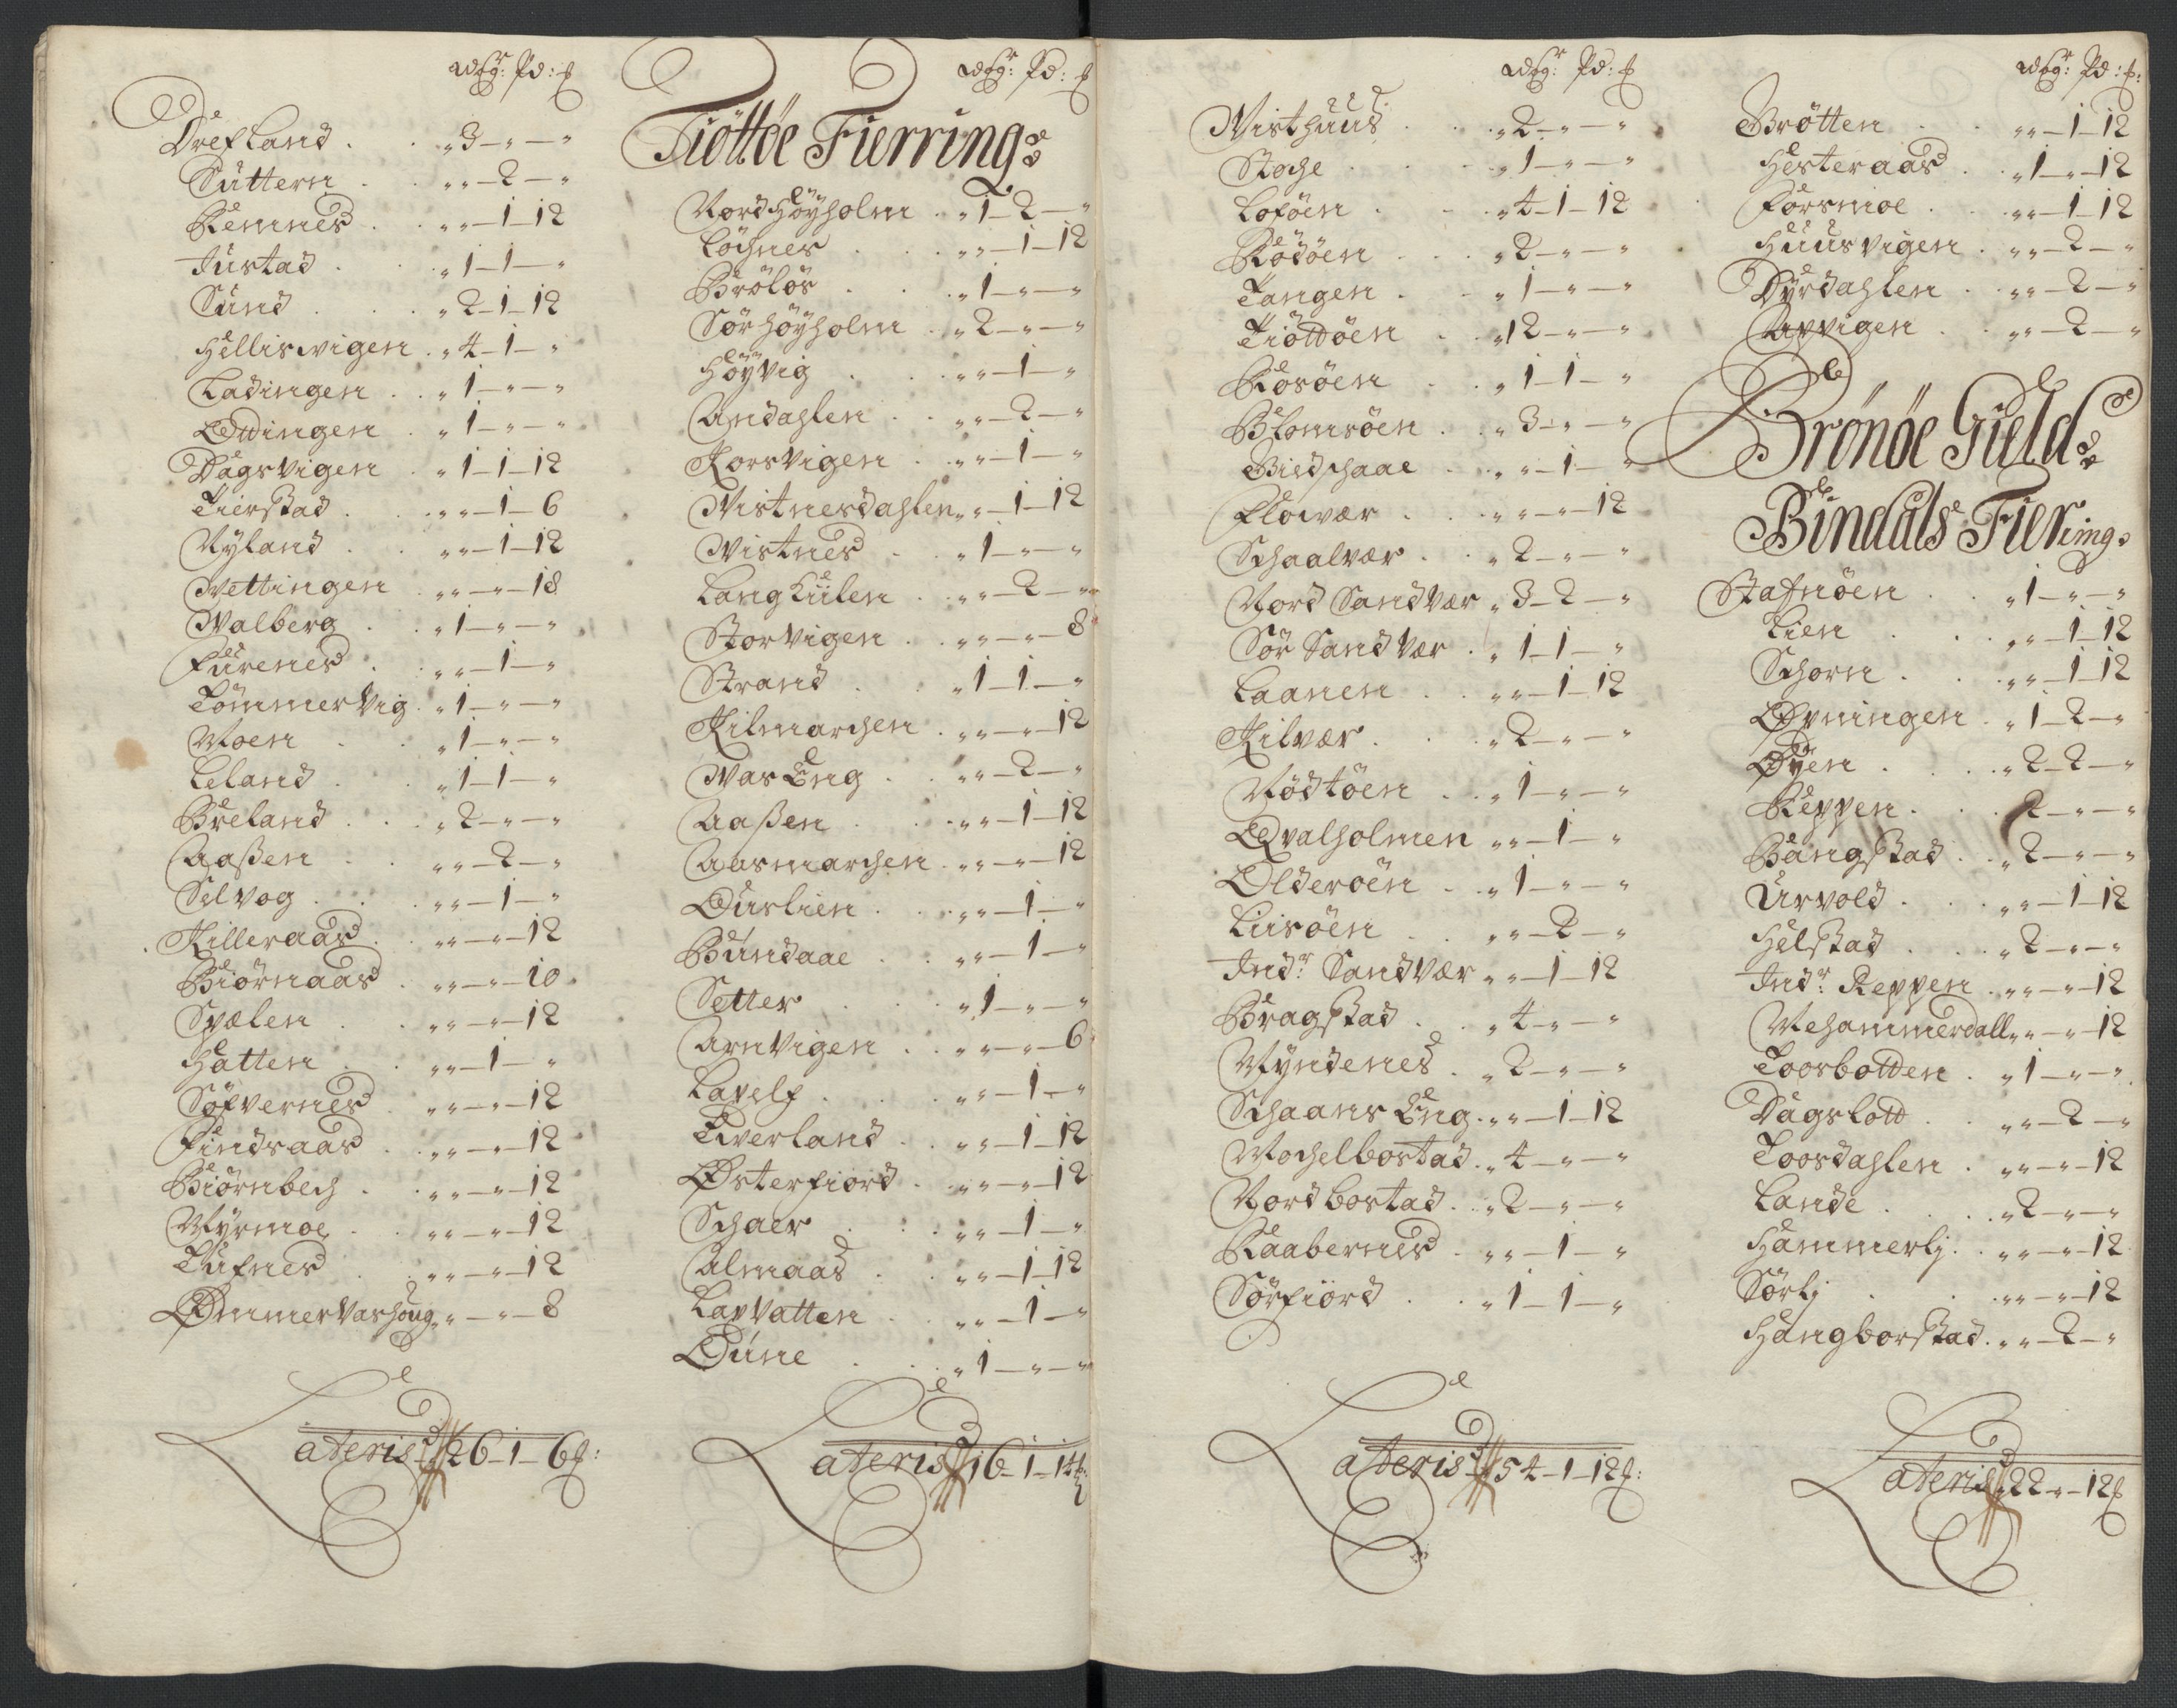 Wog: Pd: ℔
Drefland . „3-„-„
Suttern . „„-2-„
Remnes . „„-1-12
Justad . „1-1-„
Sund . „2-1-12
Hellisvigen . „4-1-„
Ladingen . „1-„-„
Ottingen . „1-„-„
Dagsvigen „1-1-12
Tierstad . „„-1-6
Nyland . „„-1-12
Vettingen „„-„-18
Valberg . „1-„-„
Fürenes . „„-1-„
Tömmervig . „1-„-„
Moen . „1-„-„
Leland . „1-1-„
Breland . „2-„-„
Aaßen . „„-2-„
Selvog . „„-1-„
Killeraas . „„-„-12
Biörnaas . „„-„-10
Spælen . „„-„-12
Hatten . „„-1-„
Söfvernes . „„-„-12
Findsaas . „„-„-12
Biörnbech . „„-„-12
Myrmoe . „„-„-12
Tufnes . „„-„-12
Ømmervashoug „„-„-8
Lateris 26-1-6℔:
Wog: Pd: ℔
Tiöttöe Fierring:
Nord Höyholm . „1-2-„
Löchnes . „„-1-12
Brölös . „1-„-„
Sör höyholm . „2-„-„
Höyvig . „„-1-„
Andahlen . „„-2-„
Korsvigen . „„-1-„
Vistnesdahlen „„-1-12
Vistnes . „1-„-„
Langkiilen . „„-2-„
Storvigen . „„-„-8
Strand . „1-1-„
Kilmarchen . „„-„-12
Vas Eng . „„-2-„
Aaßen . „„-1-12
Aasmarchen . „„-„-12
Duslien . „„-1-„
Bundaae . „„-1-„
Setter . „1-„-„
Arnvigen . „„-„-6
Lavelf . „„-1-„
Tverland . „„-1-12
Østerfiord . „„-„-12
Schaer . „„-1-„
Almaas . „„-1-12
Lapvatten . „„-1-„
Dúne . „1-„-„
Lateris 16-1-14
Wog: Pd: ℔
Visthuus . „2-„-„
Stoche . „1-„-„
Loföen . „4-1-12
Rödöen . „2-„-„
Tangen . „1-„-„
Tiöttöen . „12-„-„
Rosöen . „1-1-„
Blomsöen . „3-„-„
Biedschaae . „„-1-„
Flovær . „„-„-12
Schaalvær . „2-„-„
Nord Sandvær „3-2-„
Sör Sandvær . „1-1-„
Laanen . „„-1-12
Kilvær . „2-„-„
Nödtöen . „1-„-„
Qvalholmen „„-1-„
Olderöen . „1-„-„
Liisöen . „„-2-„
Indr: Sandvær „„-1-12
Bragstad . „4-„-„
Myndenes . „2-„-„
Schaans Eng . „„-1-12
Mochelbostad . „4-„-„
Nordbostad . „2-„-„
Raabernes . „„-1-„
Sörfiord . „1-1-„
Lateris 54-1-12℔:
Wog: Pd: ℔:
Brötten . „„-1-12
Hesteraas . „1-„-12
Forsmoe . „„-1-12
Huusvigen . „„-2-„
Dyrdahlen . „„-2-„
Apvigen . „„-2-„
Brönöe Gield:
Bindals Fiering.
Stafnöen . „1-„-„
Lien . „„-1-12
Schorn . „„-1-12
Øvningen . „1-2-„
Øyen . „2-2-„
Reppen . 2-„-„
Bangstad . „2-„-„
Urvold . „„-1-12
Helstad . „2-„-„
Indr: Reppen . „„-„-12
Mehammerdall „„-„-12
Toosbotten . „1-„-„
Dagslott . „„-2-„
Toosdahlen . „„-„-12
Lande . „2-„-„
Hammerlj . „„-„-12
Sörlj . „„-„-12
Hangborstad . „„-2-„
Lateris 22-„-12℔